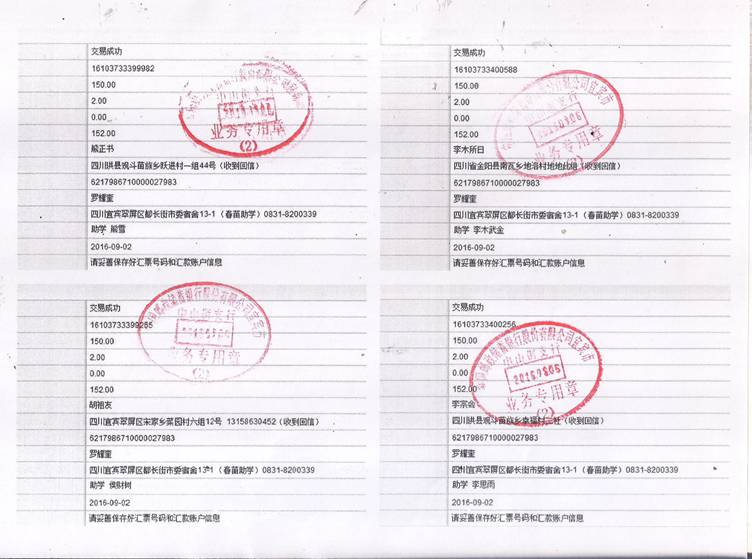 交易成功
16103733399982
150.00
2.00
0.00
152.00
熊正书
四川珙县观斗苗族乡跃进村一组44号（收到回信）
6217986710000027983
罗耀奎
四川宜宾翠屏区都长街市委宿舍13-1（春苗助学）0831-8200339
助学 熊雪
2016-09-02
请妥善保存好汇票号码和汇款账户信息
业务专用章
（2）
交易成功
16103733400588
150.00
2.00
0.00
152.00
李木所日
四川省金阳县南瓦乡地洛村地地此组（收到回信）
6217986710000027983
罗耀奎
四川宜宾翠屏区都长街市委宿舍13-1（春苗助学）0831-8200339
助学 李木武金
2016-09-02
请妥善保存好汇票号码和汇款账户信息
业务专用章
交易成功
16103733399265
150.00
2.00
0.00
152.00
胡祖友
四川宜宾翠屏区宋家乡菜园村六组12号 13158630452（收到回信）
6217986710000027983
罗耀奎
四川宜宾翠屏区都长街市委宿舍13-1（春苗助学）0831-8200339
助学 侯树树
2016-09-02
请妥善保存好汇票号码和汇款账户信息
中山街支行
业务专用章
（2）
交易成功
16103733400256
150.00
2.00
0.00
152.00
李宗会
四川珙县观斗苗族乡幸福村二社（收到回信）
6217986710000027983
罗耀奎
四川宜宾翠屏区都长街市委宿舍13-1（春苗助学）0831-8200339
助学 李思雨
2016-09-02
请妥善保存好汇票号码和汇款账户信息
中山街支行
业务专用章
（2）